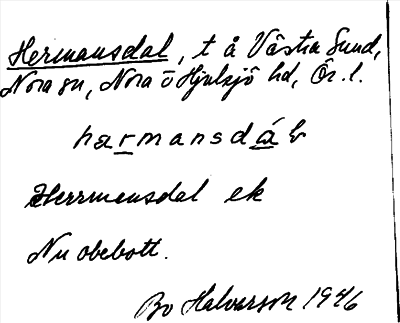 Hermansdal, t å Västra Sund,
Nora sn, Nora o Hjulsjö hd, Ör. l.
harmansdáb
Herrmansdal ek
Nu obebott.
Bo Halvarson 1946